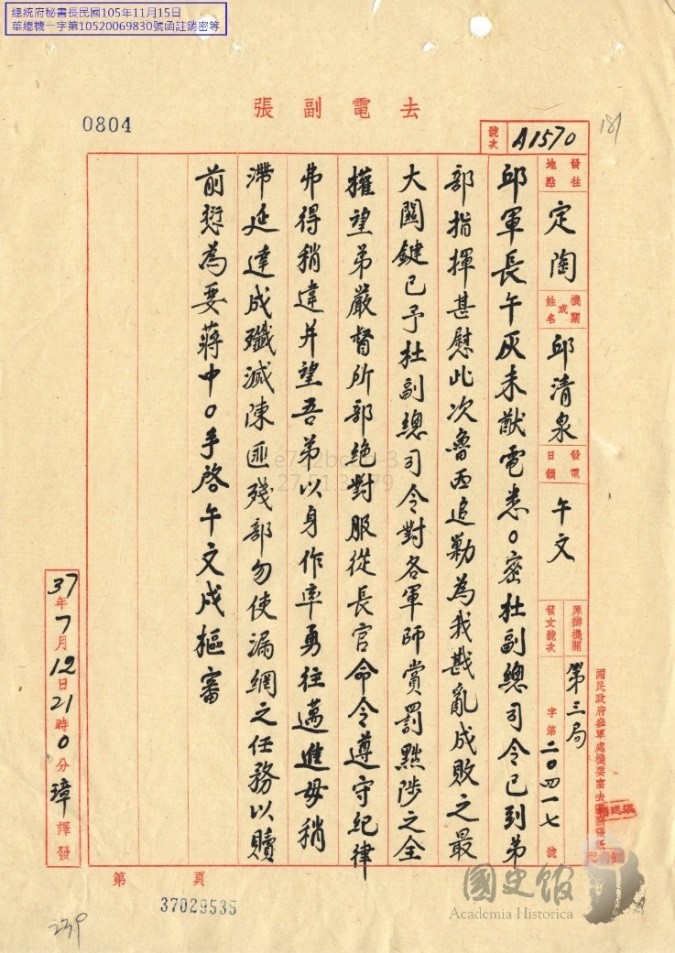 總統府秘書長民國105年11月15日
華總機一字第10520069830號函註銷密等
去電副張
0804
181
號次 A1570
發往地點 定陶 機關或姓名 邱清泉 發電日韻 午文 原辦機關發文號次 第三局 字第二〇四一七號
邱軍長午灰未猷電悉。密杜副總司令已到弟
部指揮甚慰此次魯西追勦為我戡亂成敗之最
大關鍵已予杜副總司令對各軍師賞罰黜陟之全
權望弟嚴督所部絕對服從長官命令遵守紀律
弗得稍違并望吾弟以身作率勇往邁進毋稍
滯延達成殲滅陳匪殘部勿使漏網之任務以贖
前愆為要蔣中〇手啓午文戌樞審
37年7月12日21時0分璋譯發
第 頁
37029535
國史館
Academia Historica